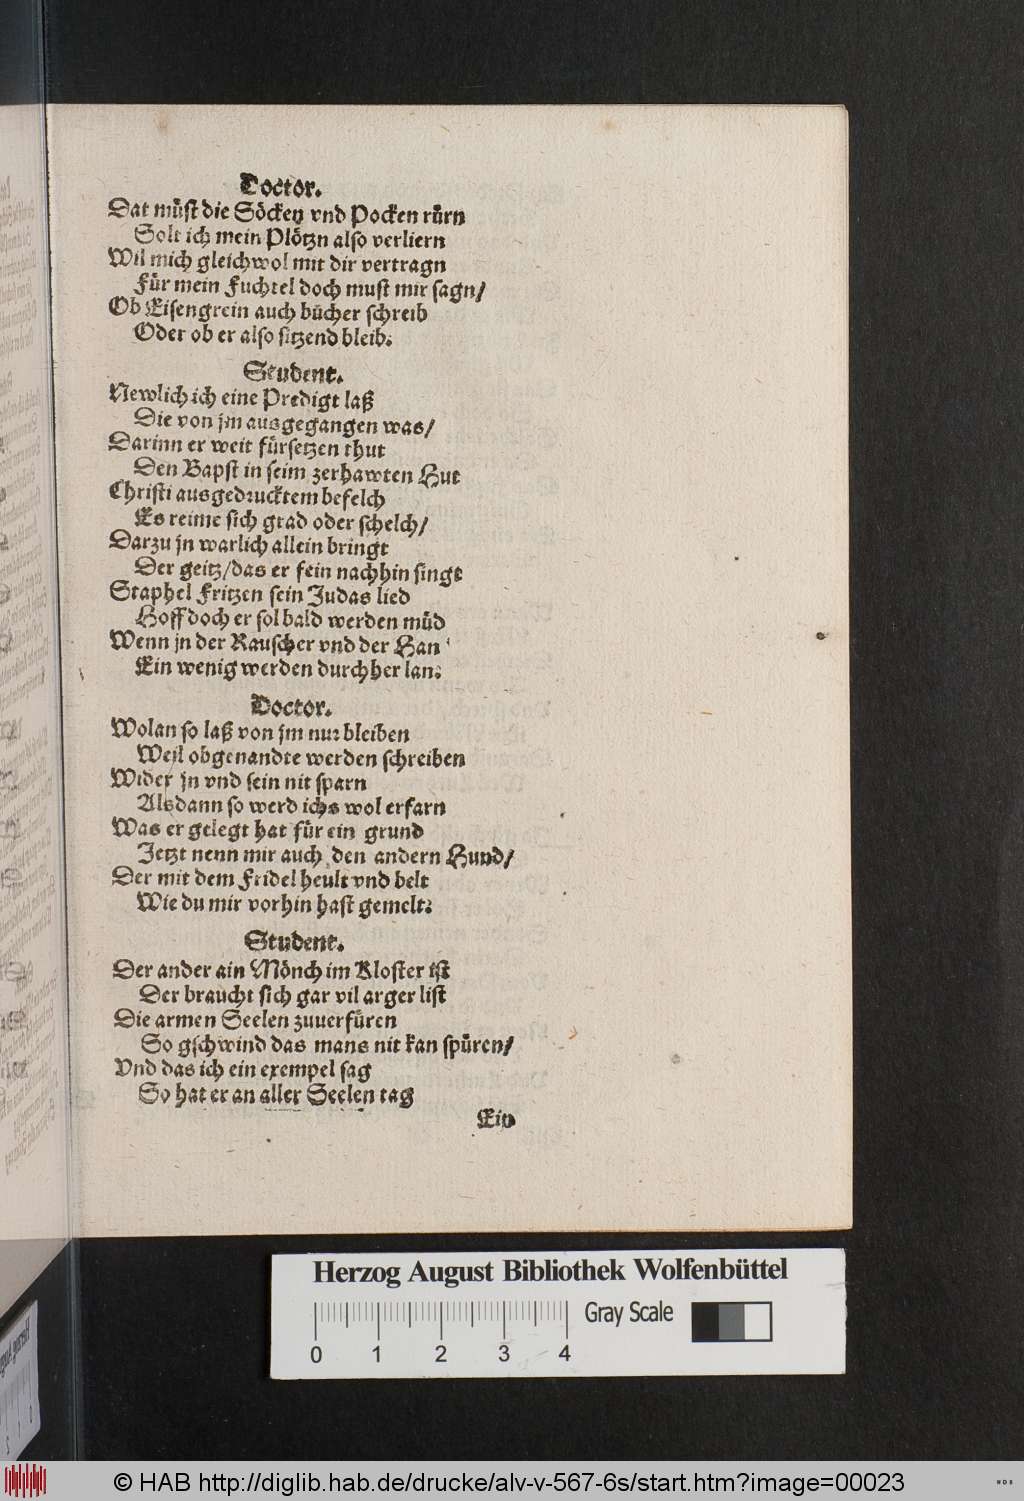 Doctor.
Dat müst die Söcken vnd Pocken rürn
Solt ich mein Plötzn also verliern
Wil mich gleichwol mit dir vertragn
Für mein Fuchtel doch must mir sagn/
Ob Eisengrein auch bücher schreib
Oder ob er also sitzend bleib.
Student.
Newlich ich eine Predigt laß
Die von jm ausgegangen was/
Darinn er weit fürsetzen thut
Den Bapst in seim zerhawten Hut
Christi ausgedrucktem befelch
Es reime sich grad oder schelch/
Darzu jn warlich allein bringt
Der geitz/das er fein nachhin singt
Staphel Fritzen sein Judas lied
Hoff doch er sol bald werden müd
Wenn jn der Rauscher vnd der Han
Ein wenig werden durchher lan.
Doctor.
Wolan so laß von jm nur bleiben
Weil obgenandte werden schreiben
Wider jn vnd sein nit sparn
Alsdann so werd ichs wol erfarn
Was er gelegt hat für ein grund
Jetzt nenn mir auch den andern Hund/
Der mit dem Fridel heult vnd belt
Wie du mir vorhin hast gemelt.
Student.
Der ander ain Mönch im Kloster ist
Der braucht sich gar vil arger list
Die armen Seelen zuuerfüren
So gschwind das mans nit kan spüren/
Vnd das ich ein exempel sag
So hat er an aller Seelen tag
Ein
Herzog August Bibliothek Wolfenbüttel
Gray Scale
0 1 2 3 4
© HAB http://diglib.hab.de/drucke/alv-v-567-6s/start.htm?image=00023